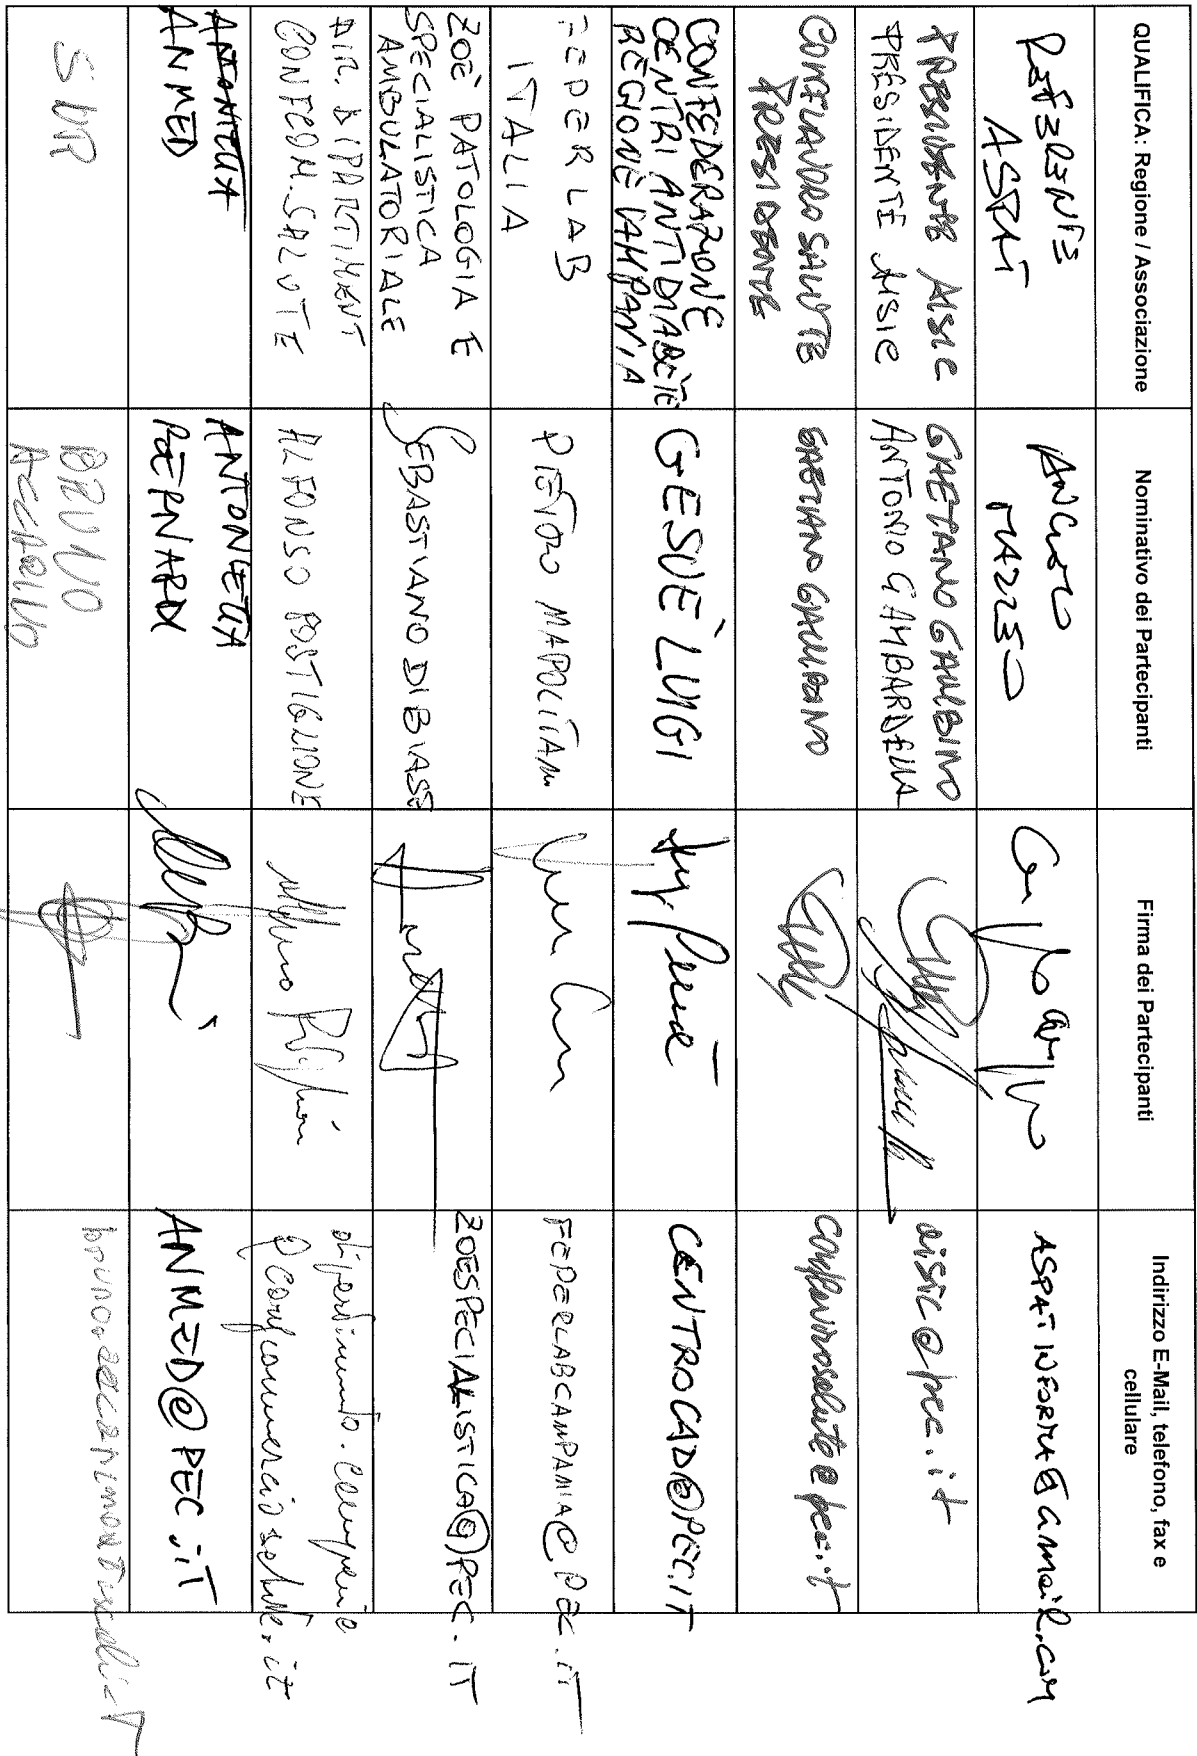 QUALIFICA: Regione / Associazione
Nominativo dei Partecipanti
Firma dei Partecipanti
Indirizzo E-Mail, telefono, fax e
cellulare
REFERENTE
ASPAT
ANGELO
MAZZEO
ASPATINFORMA@GMAIL.COM
PRESIDENTE AISIC
PRESIDENTE AISIC
GAETANO GAMBINO
ANTONIO GAMBARDELLA
aisic@pec.it
CONFLAVORO SALUTE
PRESIDENTE
conflavorosalute@pec.it
CONFEDERAZIONE
CENTRI ANTIDIABETE
REGIONE CAMPANIA
GESUÈ LUIGI
CENTROCAD@PEC.IT
FEDERLAB
ITALIA
PIETRO NAPOLITANO
FEDERLABCAMPANIA@PEC.IT
ZOÈ PATOLOGIA E
SPECIALISTICA
AMBULATORIALE
SEBASTIANO DI BIASE
ZOESPECIALISTICA@PEC.IT
DIR. DIPARTIMENT
CONFCOM.SALUTE
ALFONSO POSTIGLIONE
ANTONELLA
ANMED
ANTONELLA
BERNARDI
ANMED@PEC.IT
SUR
BRUNO
ACCARINO